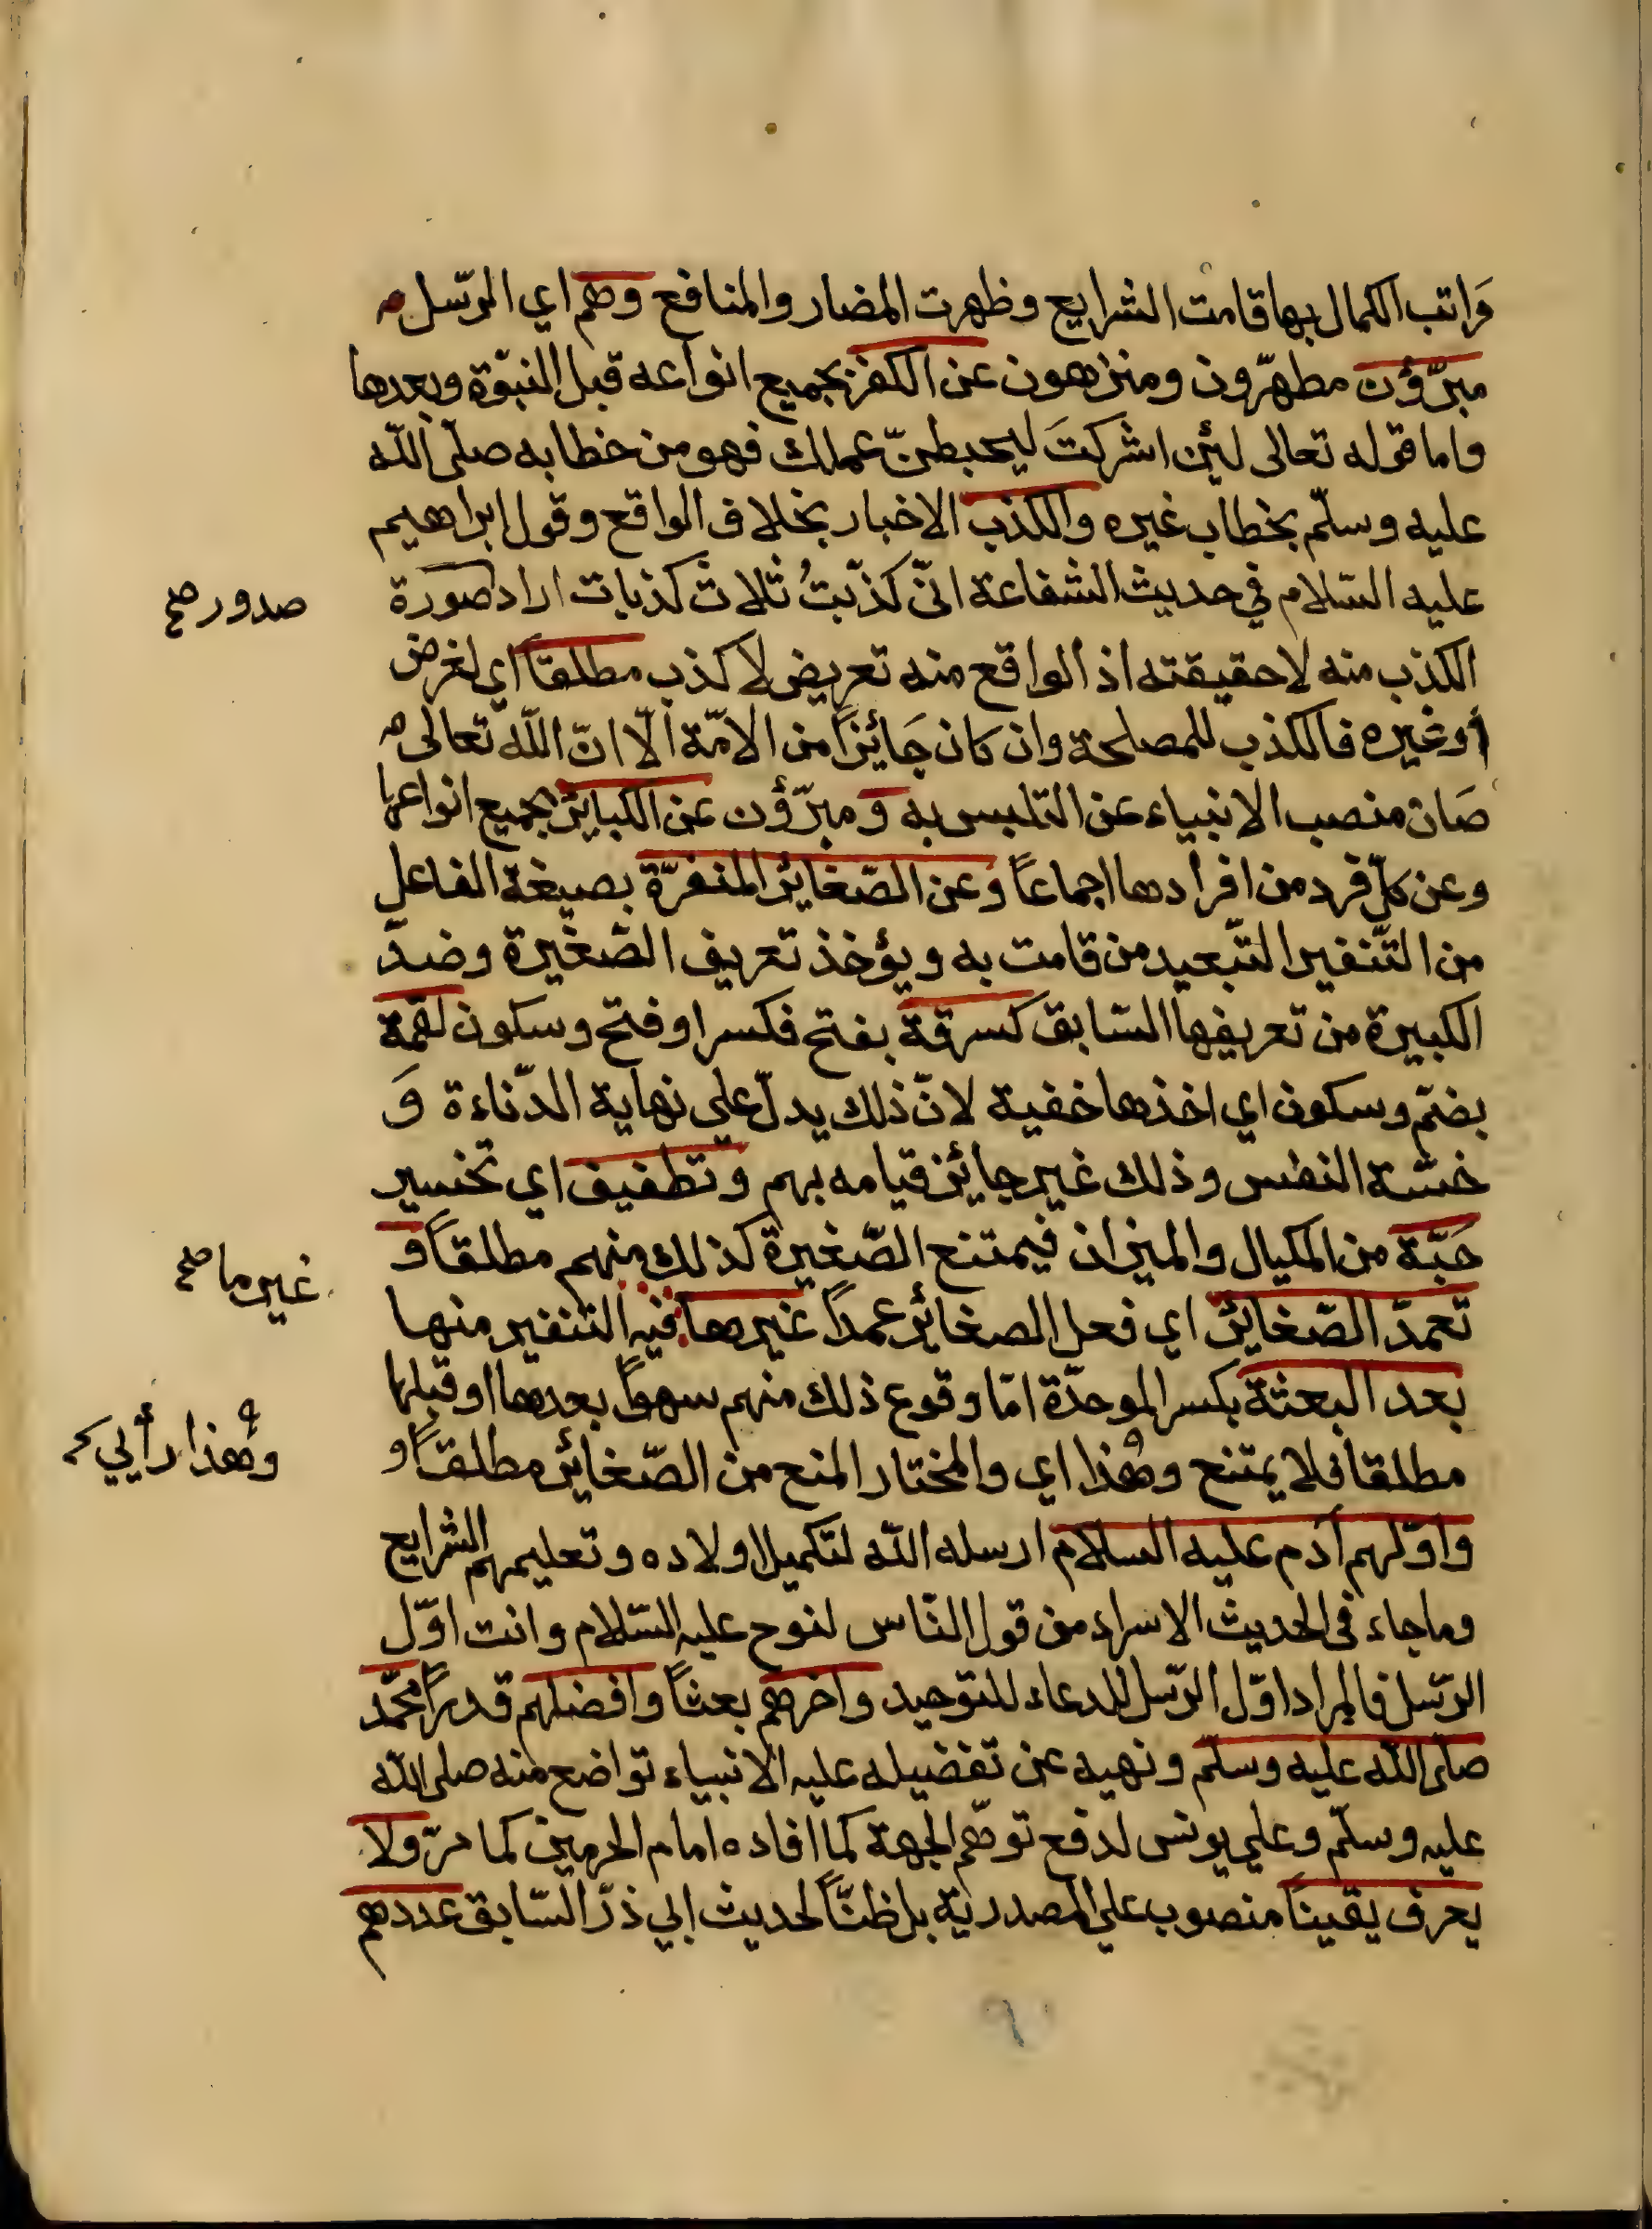 وَاتب الكمال بها قامت الشرايع وظهرت المضار والمنافع وهم اي الرّسل
مبرّؤن مطهّرون ومنزهون عن الكفر بجميع انواعه قبل النبوّة وبعدها
واما قوله تعالى لئن اشركتَ ليحبطنّ عملك فهو من خطابه صلّى اللّه
عليه وسلّم بخطاب غيره والكذب الاخبار بخلاف الواقع وقول ابراهيم
عليه السّلام في حديث الشفاعة انّى كذّبتُ ثلاث كذبات اراد صورة
صدور صح
الكذب منه لا حقيقته اذ الواقع منه تعريض لا كذب مطلقاً اي لغرض
أو غيره فالكذب للمصلحة وان كان جَائزاً من الامّة الّا انّ اللّه تعالى
صَان منصب الانبياء عن التلبس به وَ مبرّؤن عن الكبائر بجميع انواعها
وعن كلّ فرد من افرادها اجماعاً وعن الصّغائر المنفرّة بصيغة الفاعل
من التّنفير التّبعيد من قامت به ويؤخذ تعريف الصّغيرة وضدّ
الكبيرة من تعريفها السّابق كسرقة بفتح فكسر او فتح وسكون لقمة
بضمّ وسكون اي اخذها خفية لانّ ذلك يدلّ على نهاية الدّناءة وَ
خسّة النفس وذلك غير جائز قيامه بهم وتطفيف اي تخسير
حَبّة من المكيال والميزان فيمتنع الصّغيرة كذلك منهم مطلقاً وَ
تعمدّ الصّغائر اي فعل الصغائر عمداً غيرها فيه التنفير منها
غير ما صح
بعد البعثة بكسر الموحدّة امّا وقوع ذلك منهم سهواً بعدها او قبلها
مطلقا فلا يمتنع وهٰذا اي والمختار المنع من الصّغائر مطلقاً و
وهٰذا رأيي
واوّلهم آدم عليه السلام ارسله اللّه لتكميل اولاده وتعليمهم الشرايع
وما جاء فى الحديث الاسراء من قول النّاس لنوح عليه السّلام وانت اوّل
الرّسل فالمراد اوّل الرّسل للدعاء للتوحيد واخرهم بعثاً وافضلهم قدراً محمّد
صلّى اللّه عليه وسلّم ونهيه عن تفضيله عليه الانبياء تواضع منه صلى اللّه
عليه وسلّم وعلي يونس لدفع توهّم الجهة كما افاده امام الحرمين كما مرّ ولا
يعرف يقيناً منصوب علي المصدرية بل ظنّاً لحديث ابي ذرّ السّابق عددهم